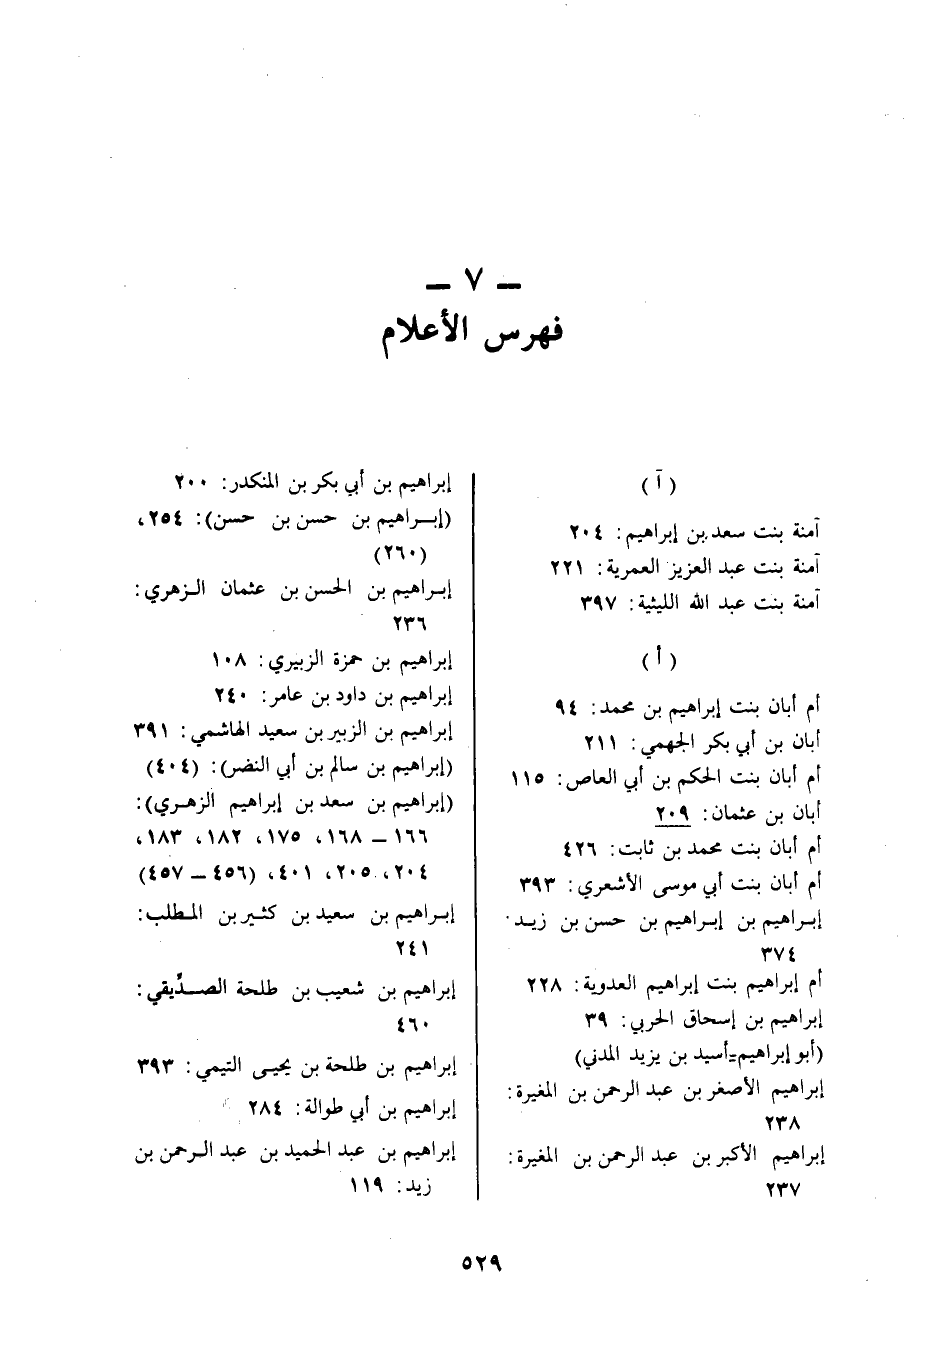 ــ ٧ ــ
فهرس الأعلام
( آ )
آمنة بنت سعد بن إبراهيم: ٢٠٤
آمنة بنت عبد العزيز العمرية: ٢٢١
آمنة بنت عبد الله الليثية: ٣٩٧
( أ )
أم أبان بنت إبراهيم بن محمد: ٩٤
أبان بن أبي بكر الجهمي: ٢١١
أم أبان بنت الحكم بن أبي العاص: ١١٥
أبان بن عثمان: ٢٠٩
أم أبان بنت محمد بن ثابت: ٤٢٦
أم أبان بنت أبي موسى الأشعري: ٣٩٣
إبراهيم بن إبراهيم بن حسن بن زيد
٣٧٤
أم إبراهيم بنت إبراهيم العدوية: ٢٢٨
إبراهيم بن إسحاق الحربي: ٣٩
(أبو إبراهيم=أسيد بن يزيد المدني)
إبراهيم الأصغر بن عبد الرحمن بن المغيرة:
٢٣٨
إبراهيم الأكبر بن عبد الرحمن بن المغيرة:
٢٣٧
إبراهيم بن أبي بكر بن المنكدر: ٢٠٠
(إبراهيم بن حسن بن حسن): ٢٥٤،
(٢٦٠)
إبراهيم بن الحسن بن عثمان الزهري:
٢٣٦
إبراهيم بن حمزة الزبيري: ١٠٨
إبراهيم بن داود بن عامر: ٢٤٠
إبراهيم بن الزبير بن سعيد الهاشمي: ٣٩١
(إبراهيم بن سالم بن أبي النضر): (٤٠٤)
(إبراهيم بن سعد بن إبراهيم الزهري):
١٦٦ ــ ١٦٨، ١٧٥، ١٨٢، ١٨٣،
٢٠٤، ٢٠٥، ٤٠١، (٤٥٦ ــ ٤٥٧)
إبراهيم بن سعيد بن كثير بن المطلب:
٢٤١
إبراهيم بن شعيب بن طلحة الصدِّيقي:
٤٦٠
إبراهيم بن طلحة بن يحيى التيمي: ٣٩٣
إبراهيم بن أبي طوالة: ٢٨٤
إبراهيم بن عبد الحميد بن عبد الرحمن بن
زيد: ١١٩
٥٢٩